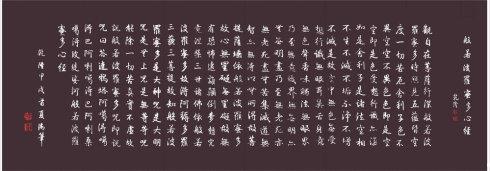 般若波羅蜜多心經
乾隆
觀自在菩薩行深般若波
羅蜜多時照見五蘊皆空
度一切苦厄舍利子色不
異空空不異色色即是空
空即是色受想行識亦復
如是舍利子是諸法空相
不生不滅不垢不淨不增
不減是故空中無色無受
想行識無眼耳鼻舌身意
無色聲香味觸法無眼界
乃至無意識界無無明亦
無無明盡乃至無老死亦
無老死盡無苦集滅道無
智亦無得以無所得故菩
提薩埵依般若波羅蜜多
故心無罣礙無罣礙故無
有恐怖遠離顛倒夢想究
竟涅槃三世諸佛依般若
波羅蜜多故得阿耨多羅
三藐三菩提故知般若波
羅蜜多是大神咒是大明
咒是無上咒是無等等咒
能除一切苦真實不虛故
說般若波羅蜜多咒即說
咒曰
得巴阿喇噶得巴阿喇桑
噶得 般若波羅
蜜多心經
乾隆甲戌 御筆